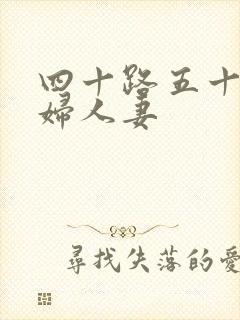 四十路五十
婦人妻
尋找失落的愛